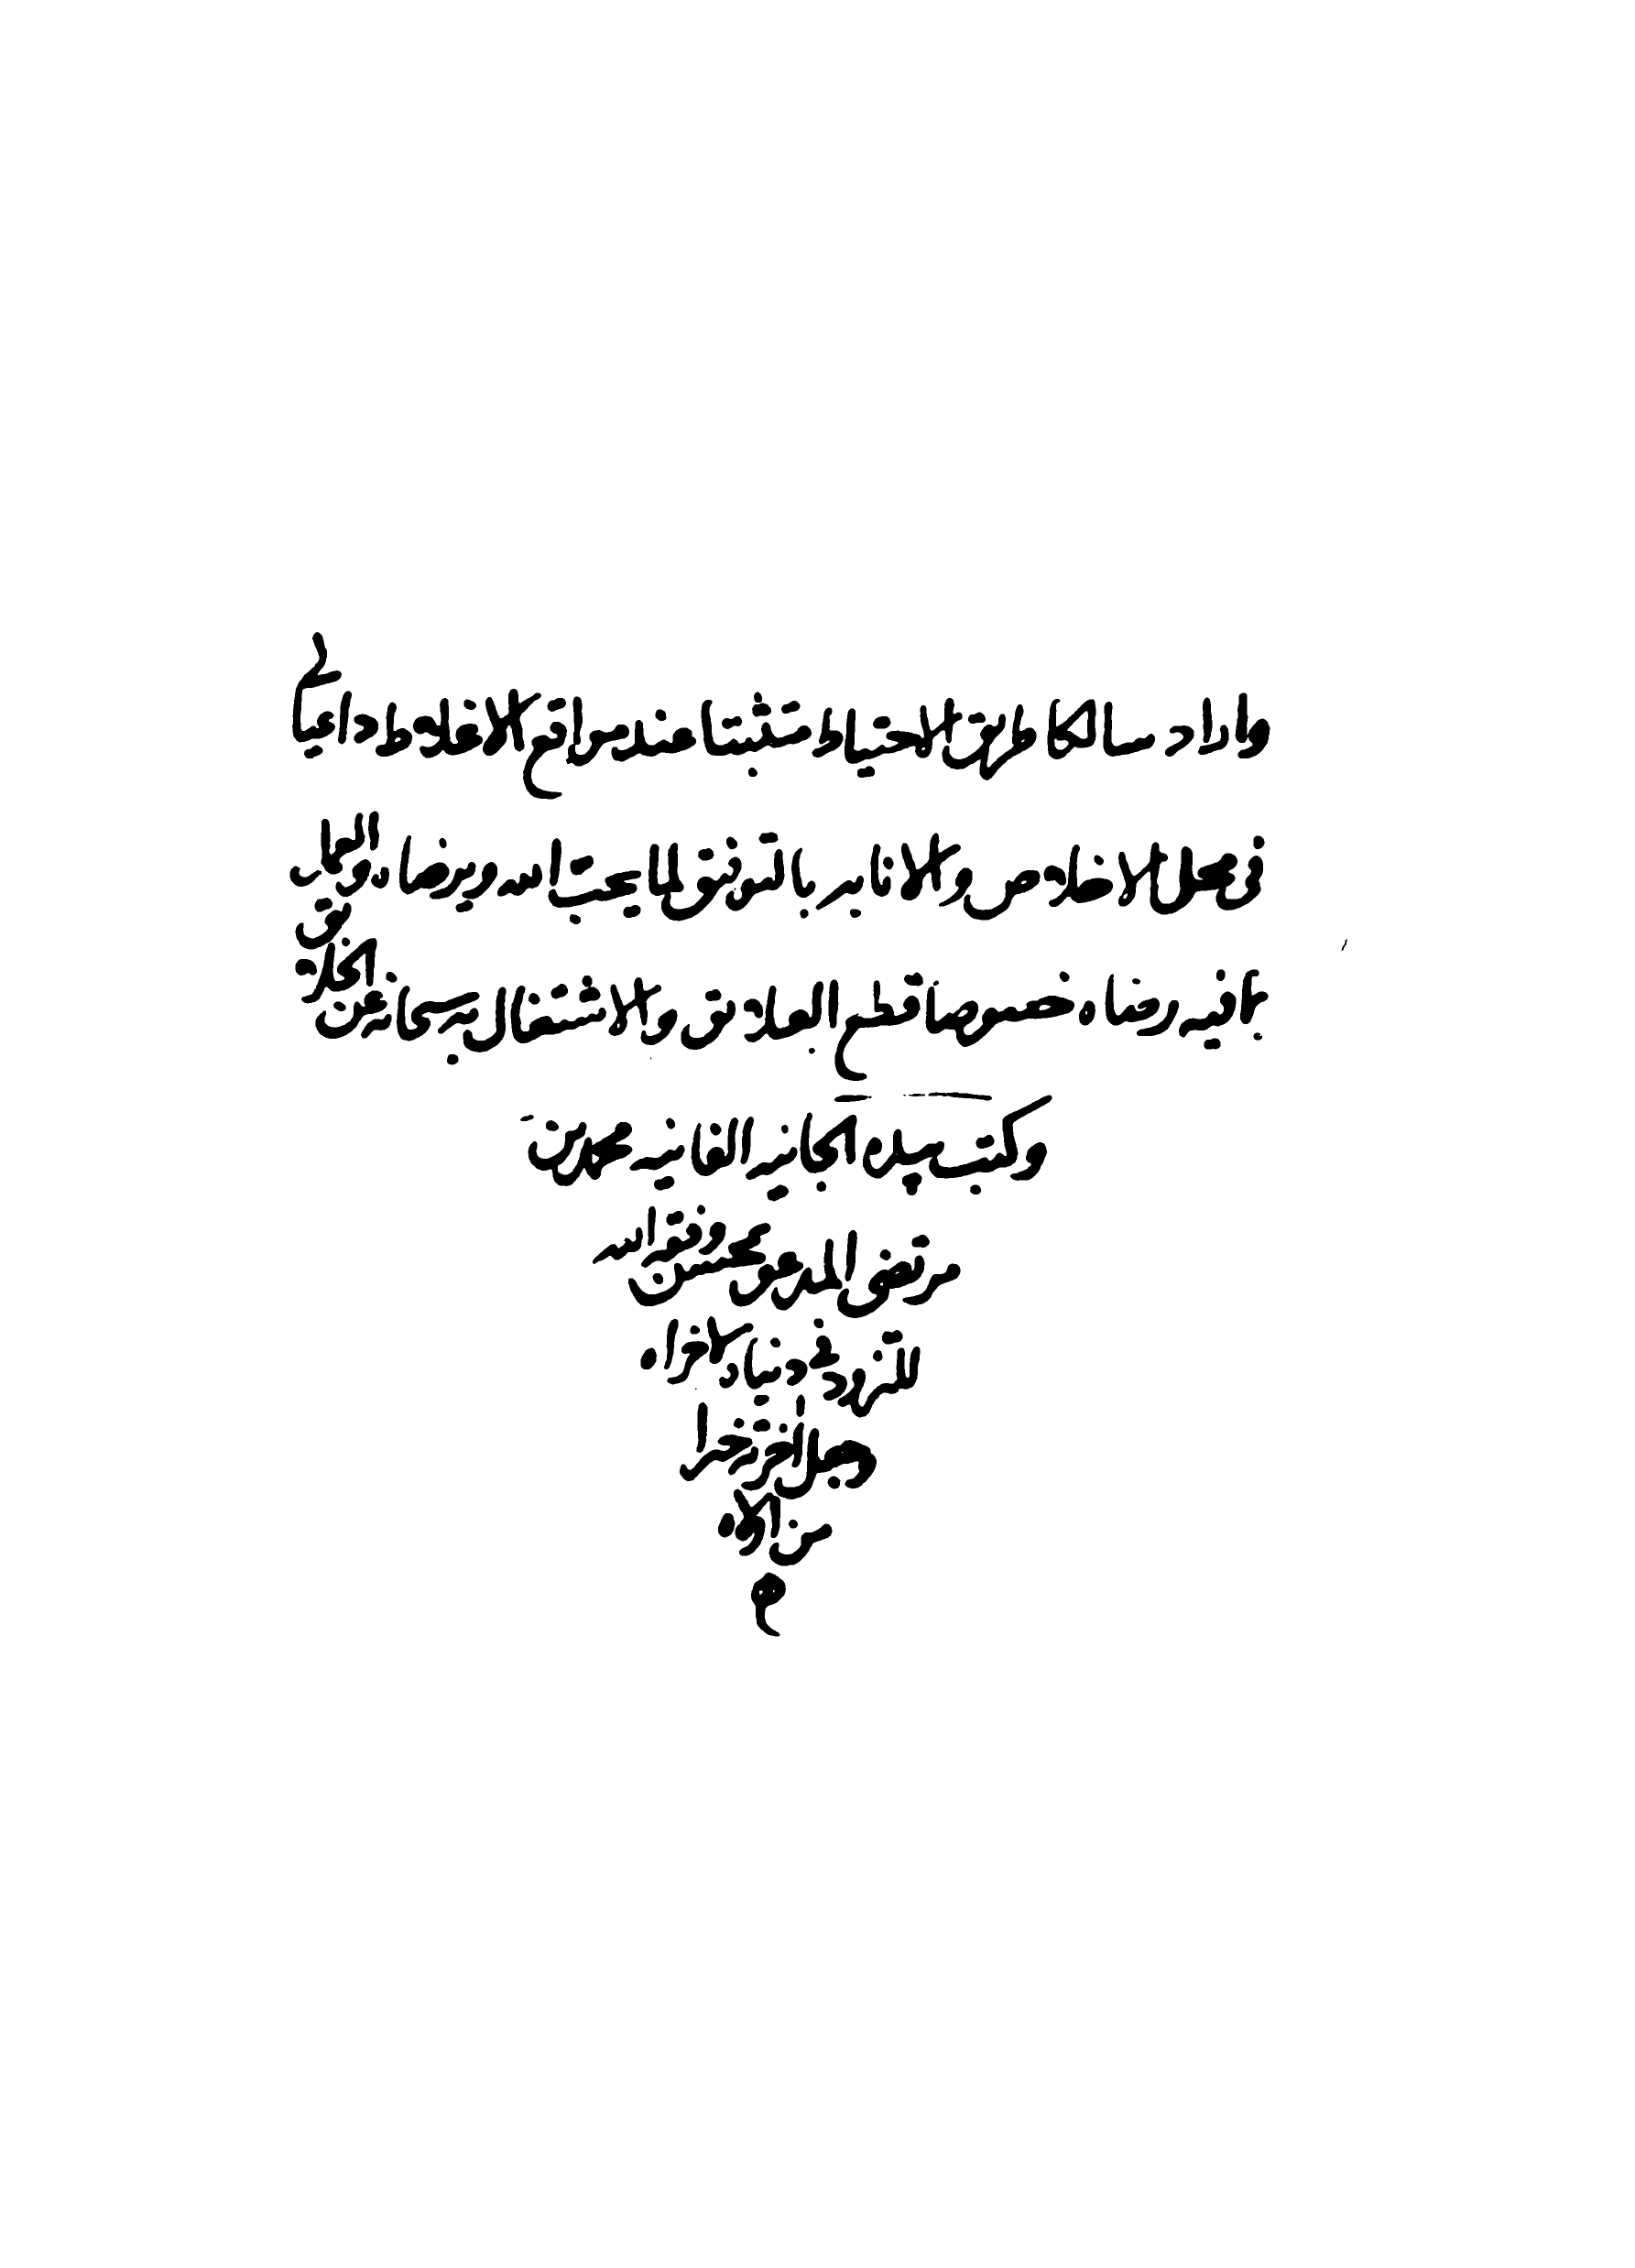 واراد سالكا طريق الاحتياط متثبتا عند مواقع الاغلاط داعيا لي
في محل الاخلاص والانابه بالتوفيق لما يحب الله ويرضاه والعمل
بما فيه رضاه خصوصا قطع العلائق والاشتغال به سبحانه عن الخلائق
وكتب بيده الجانيه الفانيه محمد بن
مرتضى المدعو بمحسن وفقه الله
للتزود في دنياه لاخراه
وجعل آخرته خيرا
من اولاه